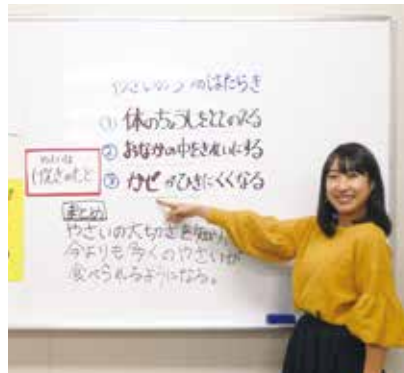 やさいの3つのはたらき
① 体のちょうしをととのえる
② おなかの中をきれいにする
③ カゼがひきにくくなる
まとめ
やさいの大切さを知り
今よりも多くのやさいが
食べられるようになる。